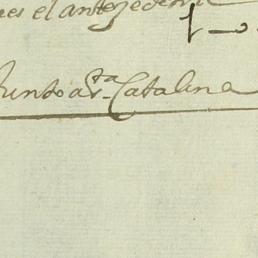 es el antezedente
Junto a r.ta Catalina